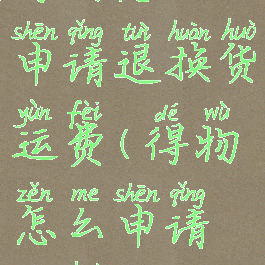 shēn qǐng tuì huàn huò
申请退换货
yùn fèi dé wù
运费(得物
zěn me shēn qǐng
怎么申请